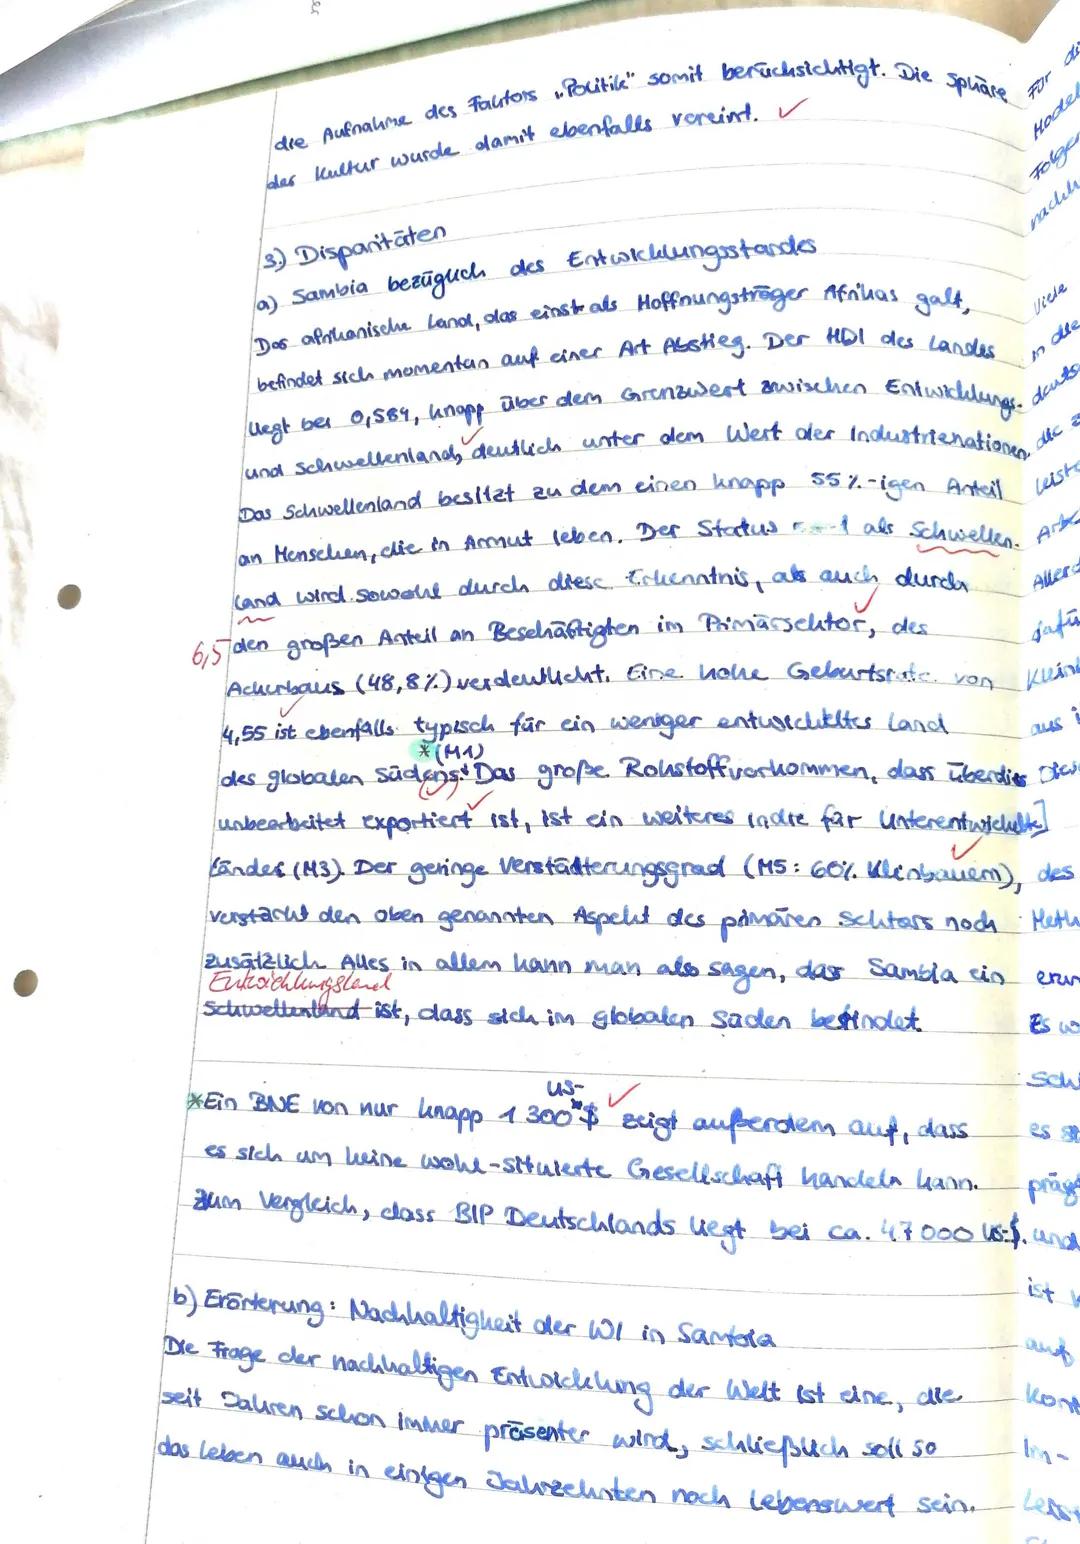 die Aufnahme des Faktors „Politik" somit berücksichtigt. Die Sphäre
der Kultur wurde damit ebenfalls vereint. ✓
3.) Disparitäten
a) Sambia bezüglich des Entwicklungsstandes
Das afrikanische Land, das einst als Hoffnungsträger Afrikas galt,
befindet sich momentan auf einer Art Abstieg. Der HDI des Landes
liegt bei 0,584, knapp über dem Grenzwert zwischen Entwicklungs-
und Schwellenland, deutlich unter dem Wert der Industrienationen.
Das Schwellenland besitzt zu dem einen knapp 55%-igen Anteil
an Menschen, die in Armut leben. Der Status als Schwellen-
land wird sowohl durch diese Erkenntnis, als auch durch
6,5 den großen Anteil an Beschäftigten im Primärsektor, des
Ackerbaus (48,8%) verdeutlicht. Eine hohe Geburtsrate von
4,55 ist ebenfalls typisch für ein weniger entwickeltes Land
*(M1)
des globalen Südens.* Das große Rohstoffvorkommen, dass überdies
unbearbeitet exportiert ist, ist ein weiteres Indiz für Unterentwickelte
Länder (M3). Der geringe Verstädterungsgrad (M5: 60% Kleinbauern),
verstärkt den oben genannten Aspekt des primären Sektors noch
zusätzlich. Alles in allem kann man also sagen, das Sambia ein
Entwicklungsland
Schwellenland ist, dass sich im globalen Süden befindet.
US-
*Ein BNE von nur knapp 1 300 $ zeigt außerdem auf, dass
es sich um keine wohl-situierte Gesellschaft handeln kann.
Zum Vergleich, dass BIP Deutschlands liegt bei ca. 47 000 US-$.
b) Erörterung: Nachhaltigkeit der WI in Sambia
Die Frage der nachhaltigen Entwicklung der Welt ist eine, die
seit Jahren schon immer präsenter wird, schließlich soll so
das Leben auch in einigen Jahrzehnten noch lebenswert sein.